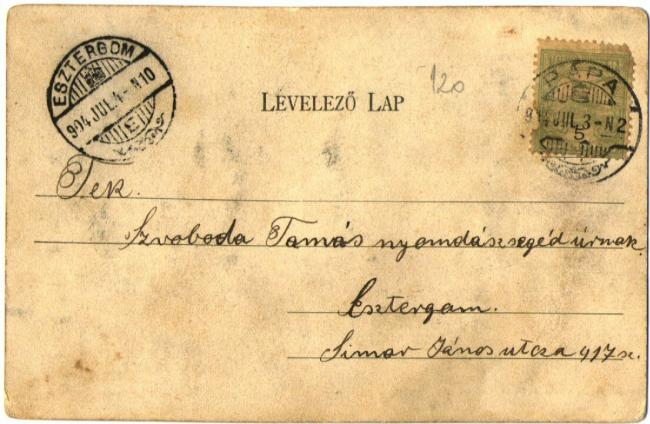 ESZTERGOM
904 JUL. 4 - N 10
120
LEVELEZŐ LAP
PÁPA
904 JUL 3 - N 2
5
Tek.
Szvoboda Tamás nyomdászsegéd úrnak
Esztergam.
Simor János utcza 417 sz.